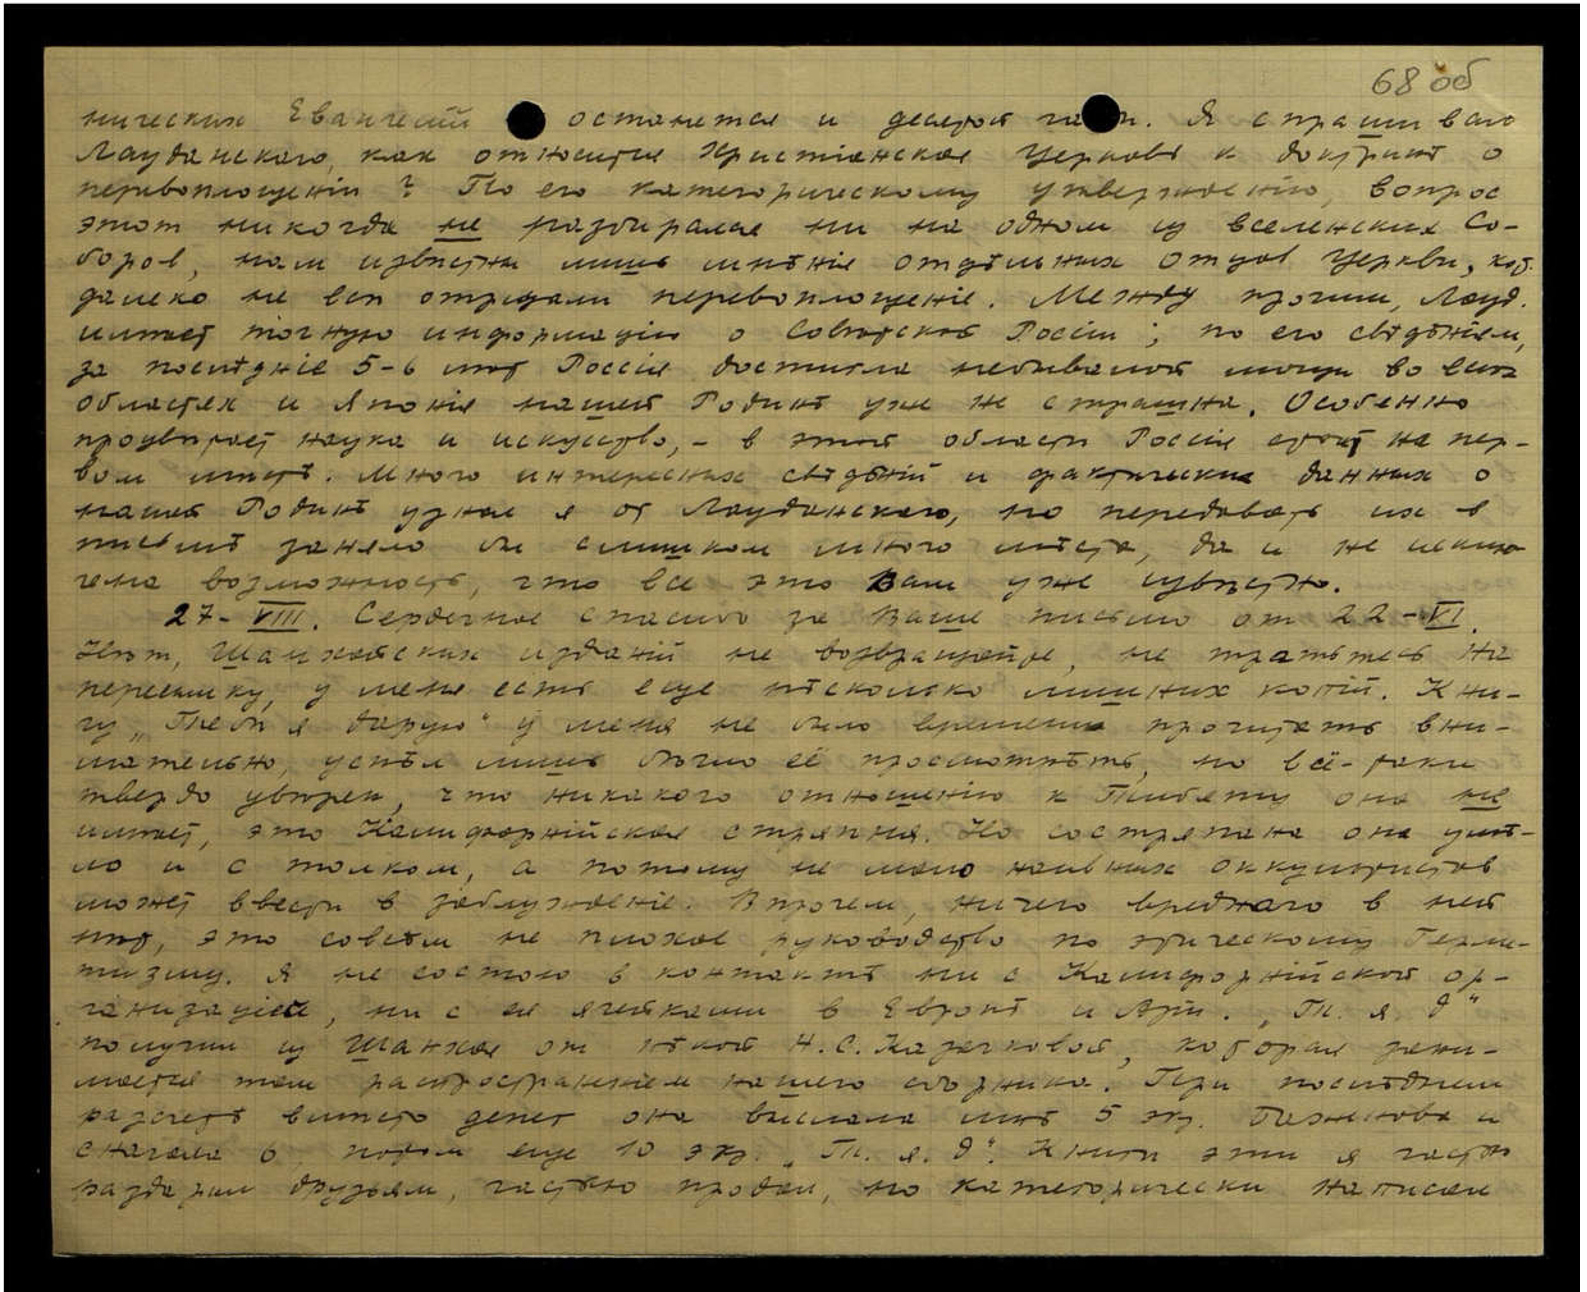 68 об
нических Евангелий останется и десятой части. Я спрашивал
Лауданскаго, как относится Христіанская Церковь к доктринѣ о
перевоплощеніи? По его категорическому утвержденію, вопрос
этот никогда не разбирался ни на одном из вселенских Со-
боров, нам извѣстны лишь мнѣнія отдѣльных отцов Церкви, кот.
далеко не всѣ отрицали перевоплощеніе. Между прочим, Лауд.
имѣет точную информацію о Совѣтской Россіи; по его свѣдѣніям,
за послѣдніе 5-6 лѣт Россія достигла небывалой мощи во всѣх
областях и Японія нашей Родинѣ уже не страшна. Особенно
процвѣтает наука и искусство, - в этой области Россія стоит на пер-
вом мѣстѣ. Много интересных свѣдѣній и фактических данных о
нашей Родинѣ узнал я от Лауданскаго, но передавать их в
письмѣ заняло бы слишком много мѣста, да и не исклю-
чена возможность, что все это Вам уже извѣстно.
27-VIII. Сердечное спасибо за Ваше письмо от 22-VI.
Нѣт, Шанхайских изданій не возвращайте, не тратьтесь на
пересылку, у меня есть еще нѣсколько лишних копій. Кни-
гу „Тебѣ я дарую" у меня не было времени прочитать вни-
мательно, успѣл лишь бѣгло её просмотрѣть, но всё-таки
твердо увѣрен, что никакого отношенію к Тибету она не
имѣет, это Калифорнійская стряпня. Но состряпана она умѣ-
ло и с толком, а потому не мало наивных оккультистов
может ввести в заблужденіе. Впрочем, ничего вреднаго в ней
нѣт, это совсѣм не плохое руководство по этическому Герме-
тизму. Я не состою в контактѣ ни с Калифорнійской ор-
ганизаціей, ни с ея ячейками в Европѣ и Азіи. „Т. я. д"
получил из Шанхая от нѣкой Н.С. Казачковой, которая зани-
мается там распространеніем нашего сборника. При послѣднем
разсчетѣ вмѣсто денег она выслала мнѣ 5 экз. Баженова и
сначала 6, потом еще 10 экз. „Т. я. д". Книги эти я частью
раздарил друзьям, частью продал, но категорически написал